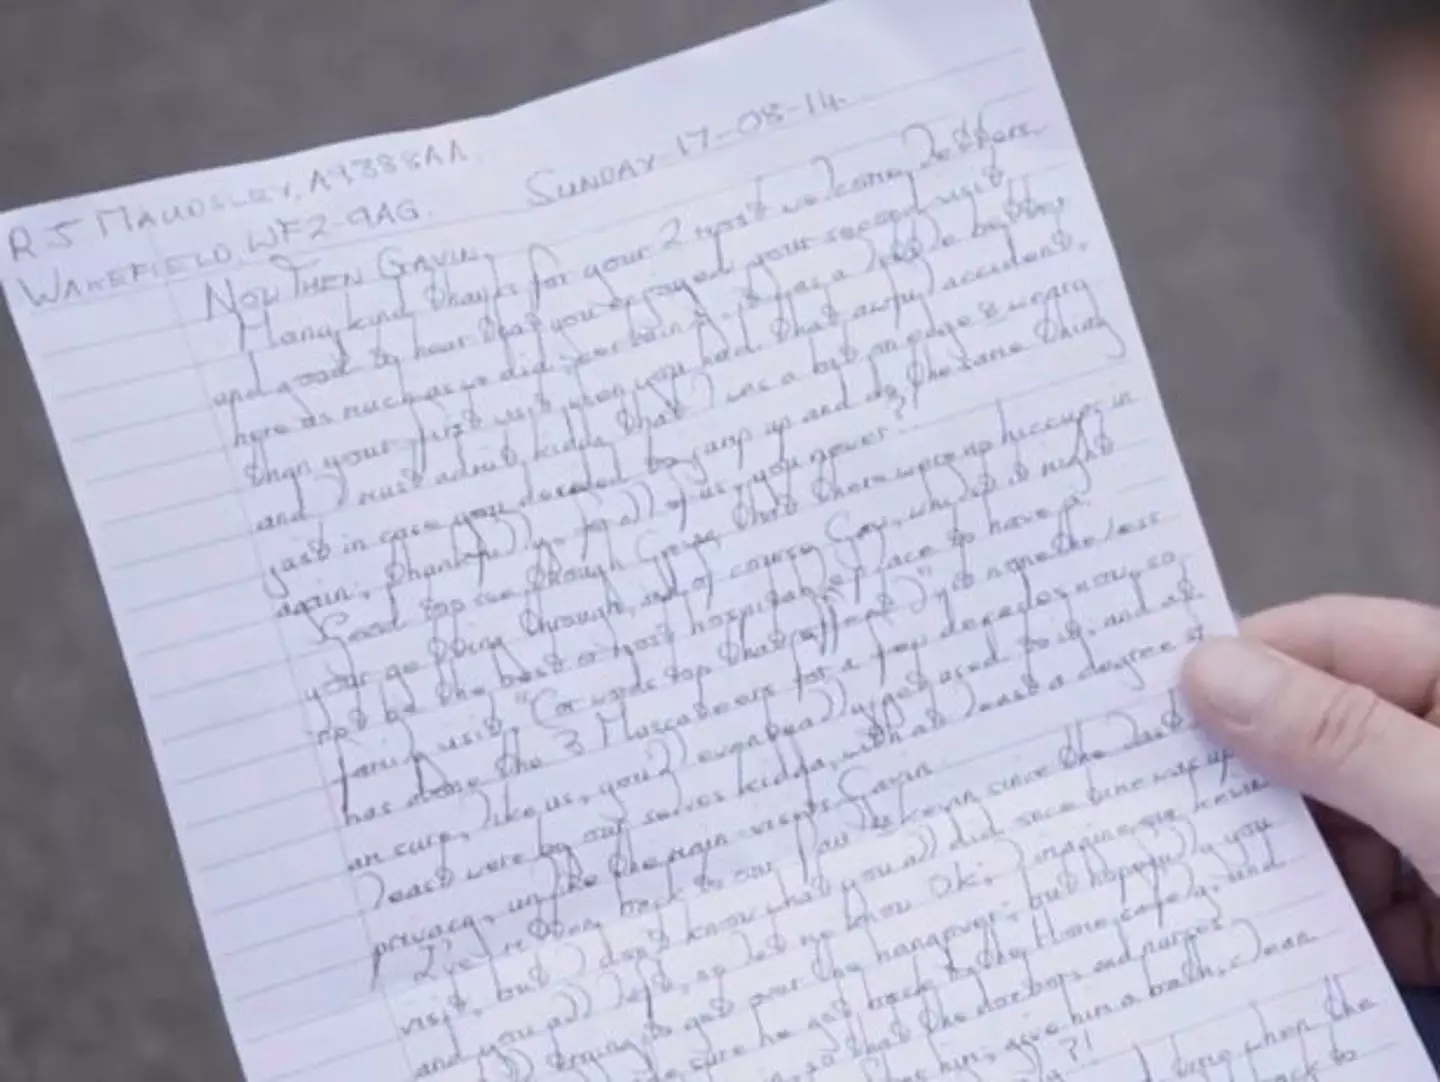 R J MAUDSLEY, A9388AA
WAKEFIELD, WF2-9AG.
SUNDAY 17-08-14.
NOW THEN GAVIN,
Many kind thanks for your 2 most welcome letters
and good to hear that you enjoyed your second visit
here as much as we did, certainly it was a little better
than your first visit when you had that awful accident,
and I must admit kidda that I was a bit on edge & weary
just in case you decided to jump up and do the same thing
again, thankfully for all of us, you never?!
Good too though that there were no hiccups in
your getting through, of course Gav, which might
not be the best or most hospitable place to have a
family visit "
has done the 3 Musketeers for a few decades now, so
am sure, like us, you'll eventually get used to it, and at
least were by our selves kidda, with at least a degree of
privacy, unlike the main visits Gavin
I've written back to our Paul & Kevin since the last
visit, but I don't know what you all did
and you all left, so let me know OK, I imagine
trying to get over the hangover, but hopefully you
sure he got back to the Home safely, and
that the doctors and nurses
him, give him a bath, clean
?!
when the
back to